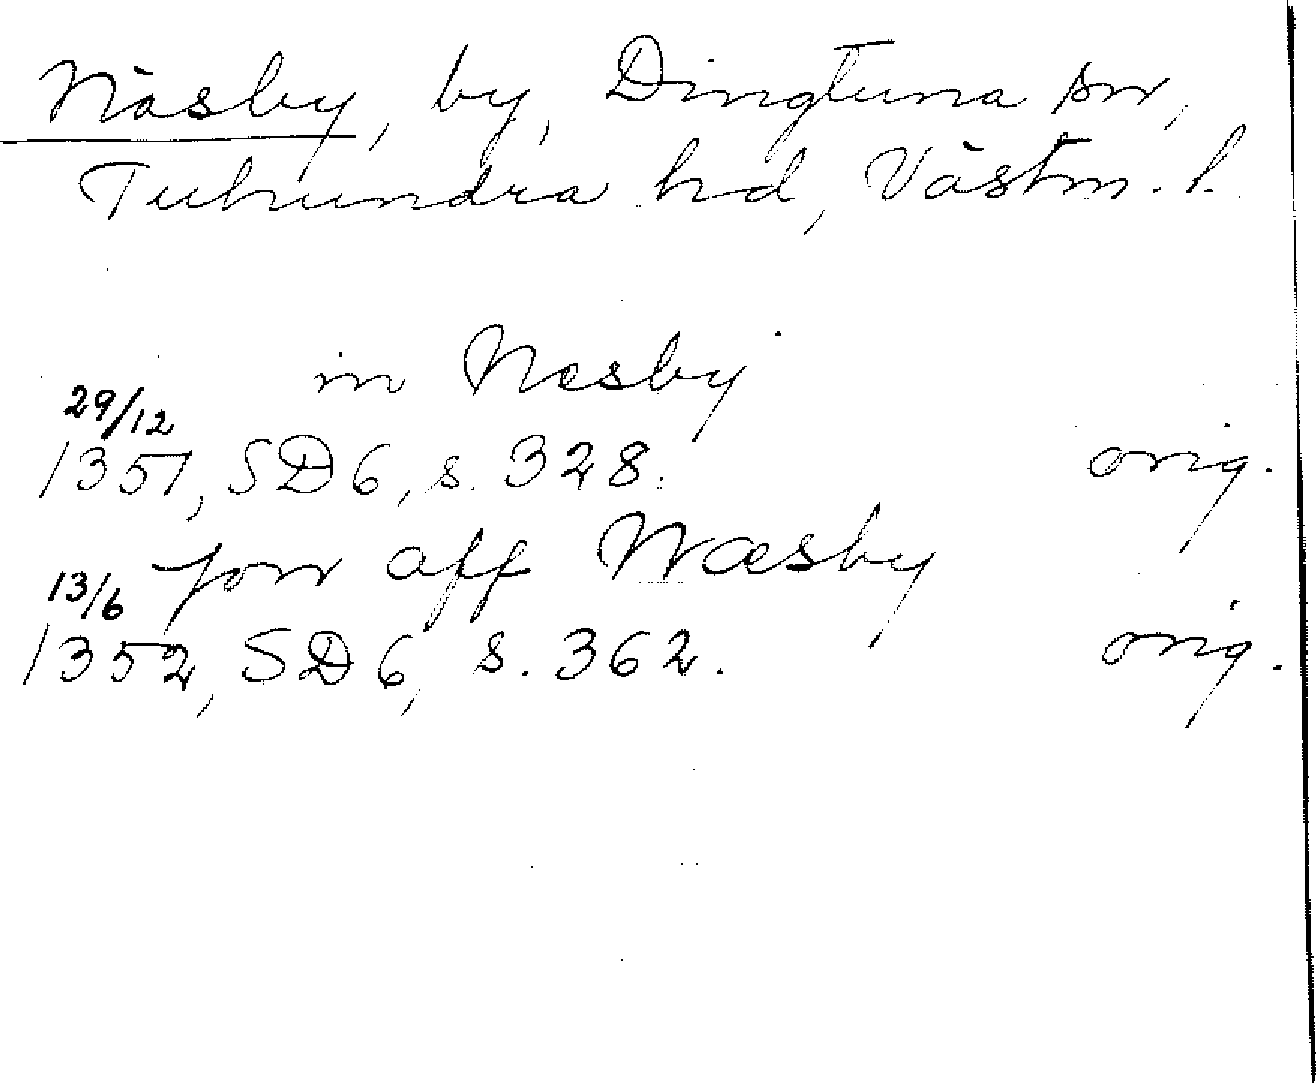 Näsby, by, Dingtuna sn,
Tuhundra hd, Västm. l.
in Næsby
29/12
1351, SD6, s. 328. orig.
jon aff Næsby
13/6
1352, SD6, s. 362. orig.